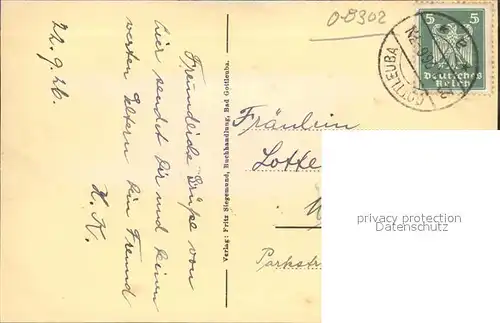 O-8302
5 5
Deutsches
Reich
GOTTLEUBA
22.9.26.
Freundliche Grüße von
hier sendet Dir und Deinen
werten Eltern Dein Freund
H. K.
Verlag: Fritz Siegemund, Buchhandlung, Bad Gottleuba.
Fräulein
Lotte
Parkstr
privacy protection
Datenschutz